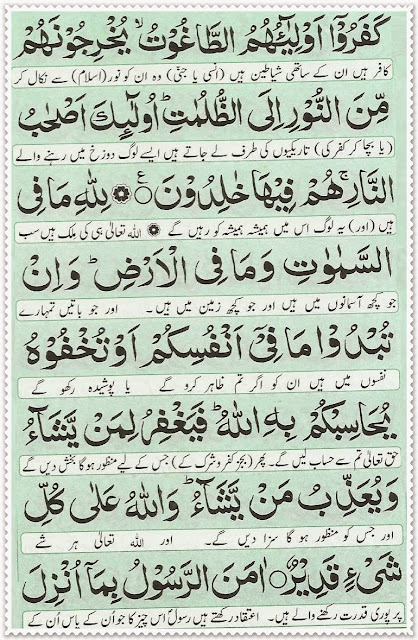 كَفَرُوْۤا اَوْلِیٰٓئُهُمُ الطَّاغُوْتُ ۙ یُخْرِجُوْنَهُمْ
کافر ہیں ان کے ساتھی شیاطین ہیں (انسی یا جنّی) وہ ان کو نور (اسلام) سے نکال کر
مِّنَ النُّوْرِ اِلَی الظُّلُمٰتِ ؕ اُولٰٓئِكَ اَصْحٰبُ
(یا بچا کر کفر کی) تاریکیوں کی طرف لے جاتے ہیں ایسے لوگ دوزخ میں رہنے والے
النَّارِ ۚ هُمْ فِیْهَا خٰلِدُوْنَ ۠ لِلّٰهِ مَا فِی
ہیں (اور) یہ لوگ اس میں ہمیشہ ہمیشہ کو رہیں گے ۞ اللہ تعالیٰ ہی کی ملک ہیں سب
السَّمٰوٰتِ وَمَا فِی الْاَرْضِ ؕ وَاِنْ
جو کچھ آسمانوں میں ہیں اور جو کچھ زمین میں ہیں۔ اور جو باتیں تمہارے
تُبْدُوْا مَا فِیْۤ اَنْفُسِكُمْ اَوْ تُخْفُوْهُ
نفسوں میں ہیں ان کو اگر تم ظاہر کرو گے یا پوشیدہ رکھو گے
یُحَاسِبْكُمْ بِهِ اللّٰهُ ؕ فَیَغْفِرُ لِمَنْ یَّشَآءُ
حق تعالیٰ تم سے حساب لیں گے۔ پھر (بجز کفر و شرک کے) جس کے لیے منظور ہوگا بخش دیں گے
وَیُعَذِّبُ مَنْ یَّشَآءُ ؕ وَاللّٰهُ عَلٰی كُلِّ
اور جس کو منظور ہو گا سزا دیں گے۔ اور اللہ تعالیٰ ہر شے
شَیْءٍ قَدِیْرٌ ۝ اٰمَنَ الرَّسُوْلُ بِمَاۤ اُنْزِلَ
پر پوری قدرت رکھنے والے ہیں۔ اعتقاد رکھتے ہیں رسولؐ اس چیز کا جو اُن کے پاس اُن کے